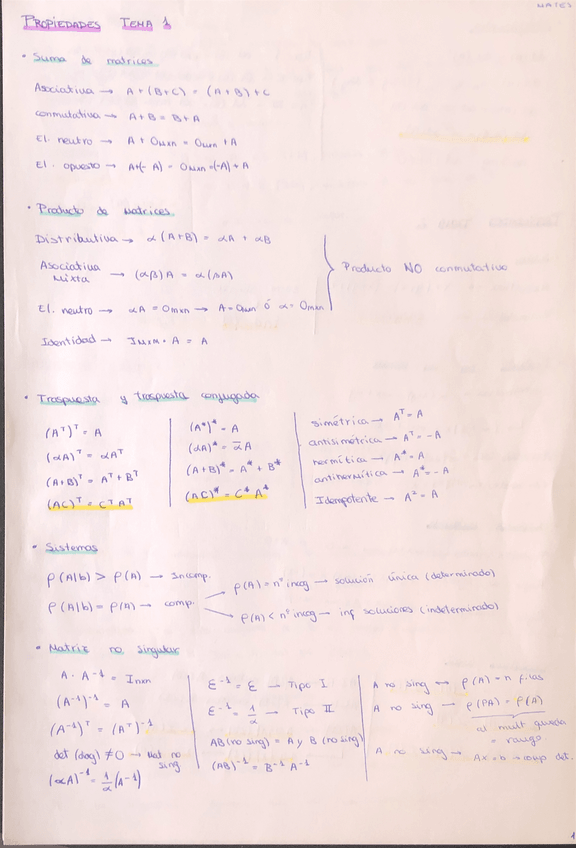 MATES
PROPIEDADES TEMA 1
· Suma de matrices
Asociativa → A+(B+C) = (A+B)+C
conmutativa → A+B = B+A
El. neutro → A + Omxn = Omxn + A
El. opuesto → A+(-A) = Omxn = (-A) + A
· Producto de matrices
Distributiva → α(A+B) = αA + αB
Asociativa mixta → (αβ)A = α(βA)
Producto NO conmutativo
El. neutro → αA = Omxn → A = Omxn ó α = Omxn
Identidad → Imxn · A = A
· Traspuesta y traspuesta conjugada
(Aᵀ)ᵀ = A
(αA)ᵀ = αAᵀ
(A+B)ᵀ = Aᵀ + Bᵀ
(AC)ᵀ = CᵀAᵀ
(A*)* = A
(αA)* = ᾱA
(A+B)* = A* + B*
(AC)* = C* A*
simétrica → Aᵀ = A
antisimétrica → Aᵀ = -A
hermítica → A* = A
antihermítica → A* = -A
Idempotente → A² = A
· Sistemas
ρ(A|b) > ρ(A) → Incomp.
ρ(A|b) = ρ(A) → comp.
ρ(A) = nº incog → solución única (determinado)
ρ(A) < nº incog → inf soluciones (indeterminado)
· Matriz no singular
A · A⁻¹ = Inxn
(A⁻¹)⁻¹ = A
(A⁻¹)ᵀ = (Aᵀ)⁻¹
det (diag) ≠ 0 → Mat no sing
(αA)⁻¹ = 1/α (A⁻¹)
E⁻¹ = E → Tipo I
E⁻¹ = 1/α → Tipo II
AB (no sing) = A y B (no sing)
(AB)⁻¹ = B⁻¹ A⁻¹
A no sing ↔ ρ(A) = n filas
A no sing → ρ(PA) = ρ(A)
al mult
= rango
A no sing → Ax = b → comp det.
1